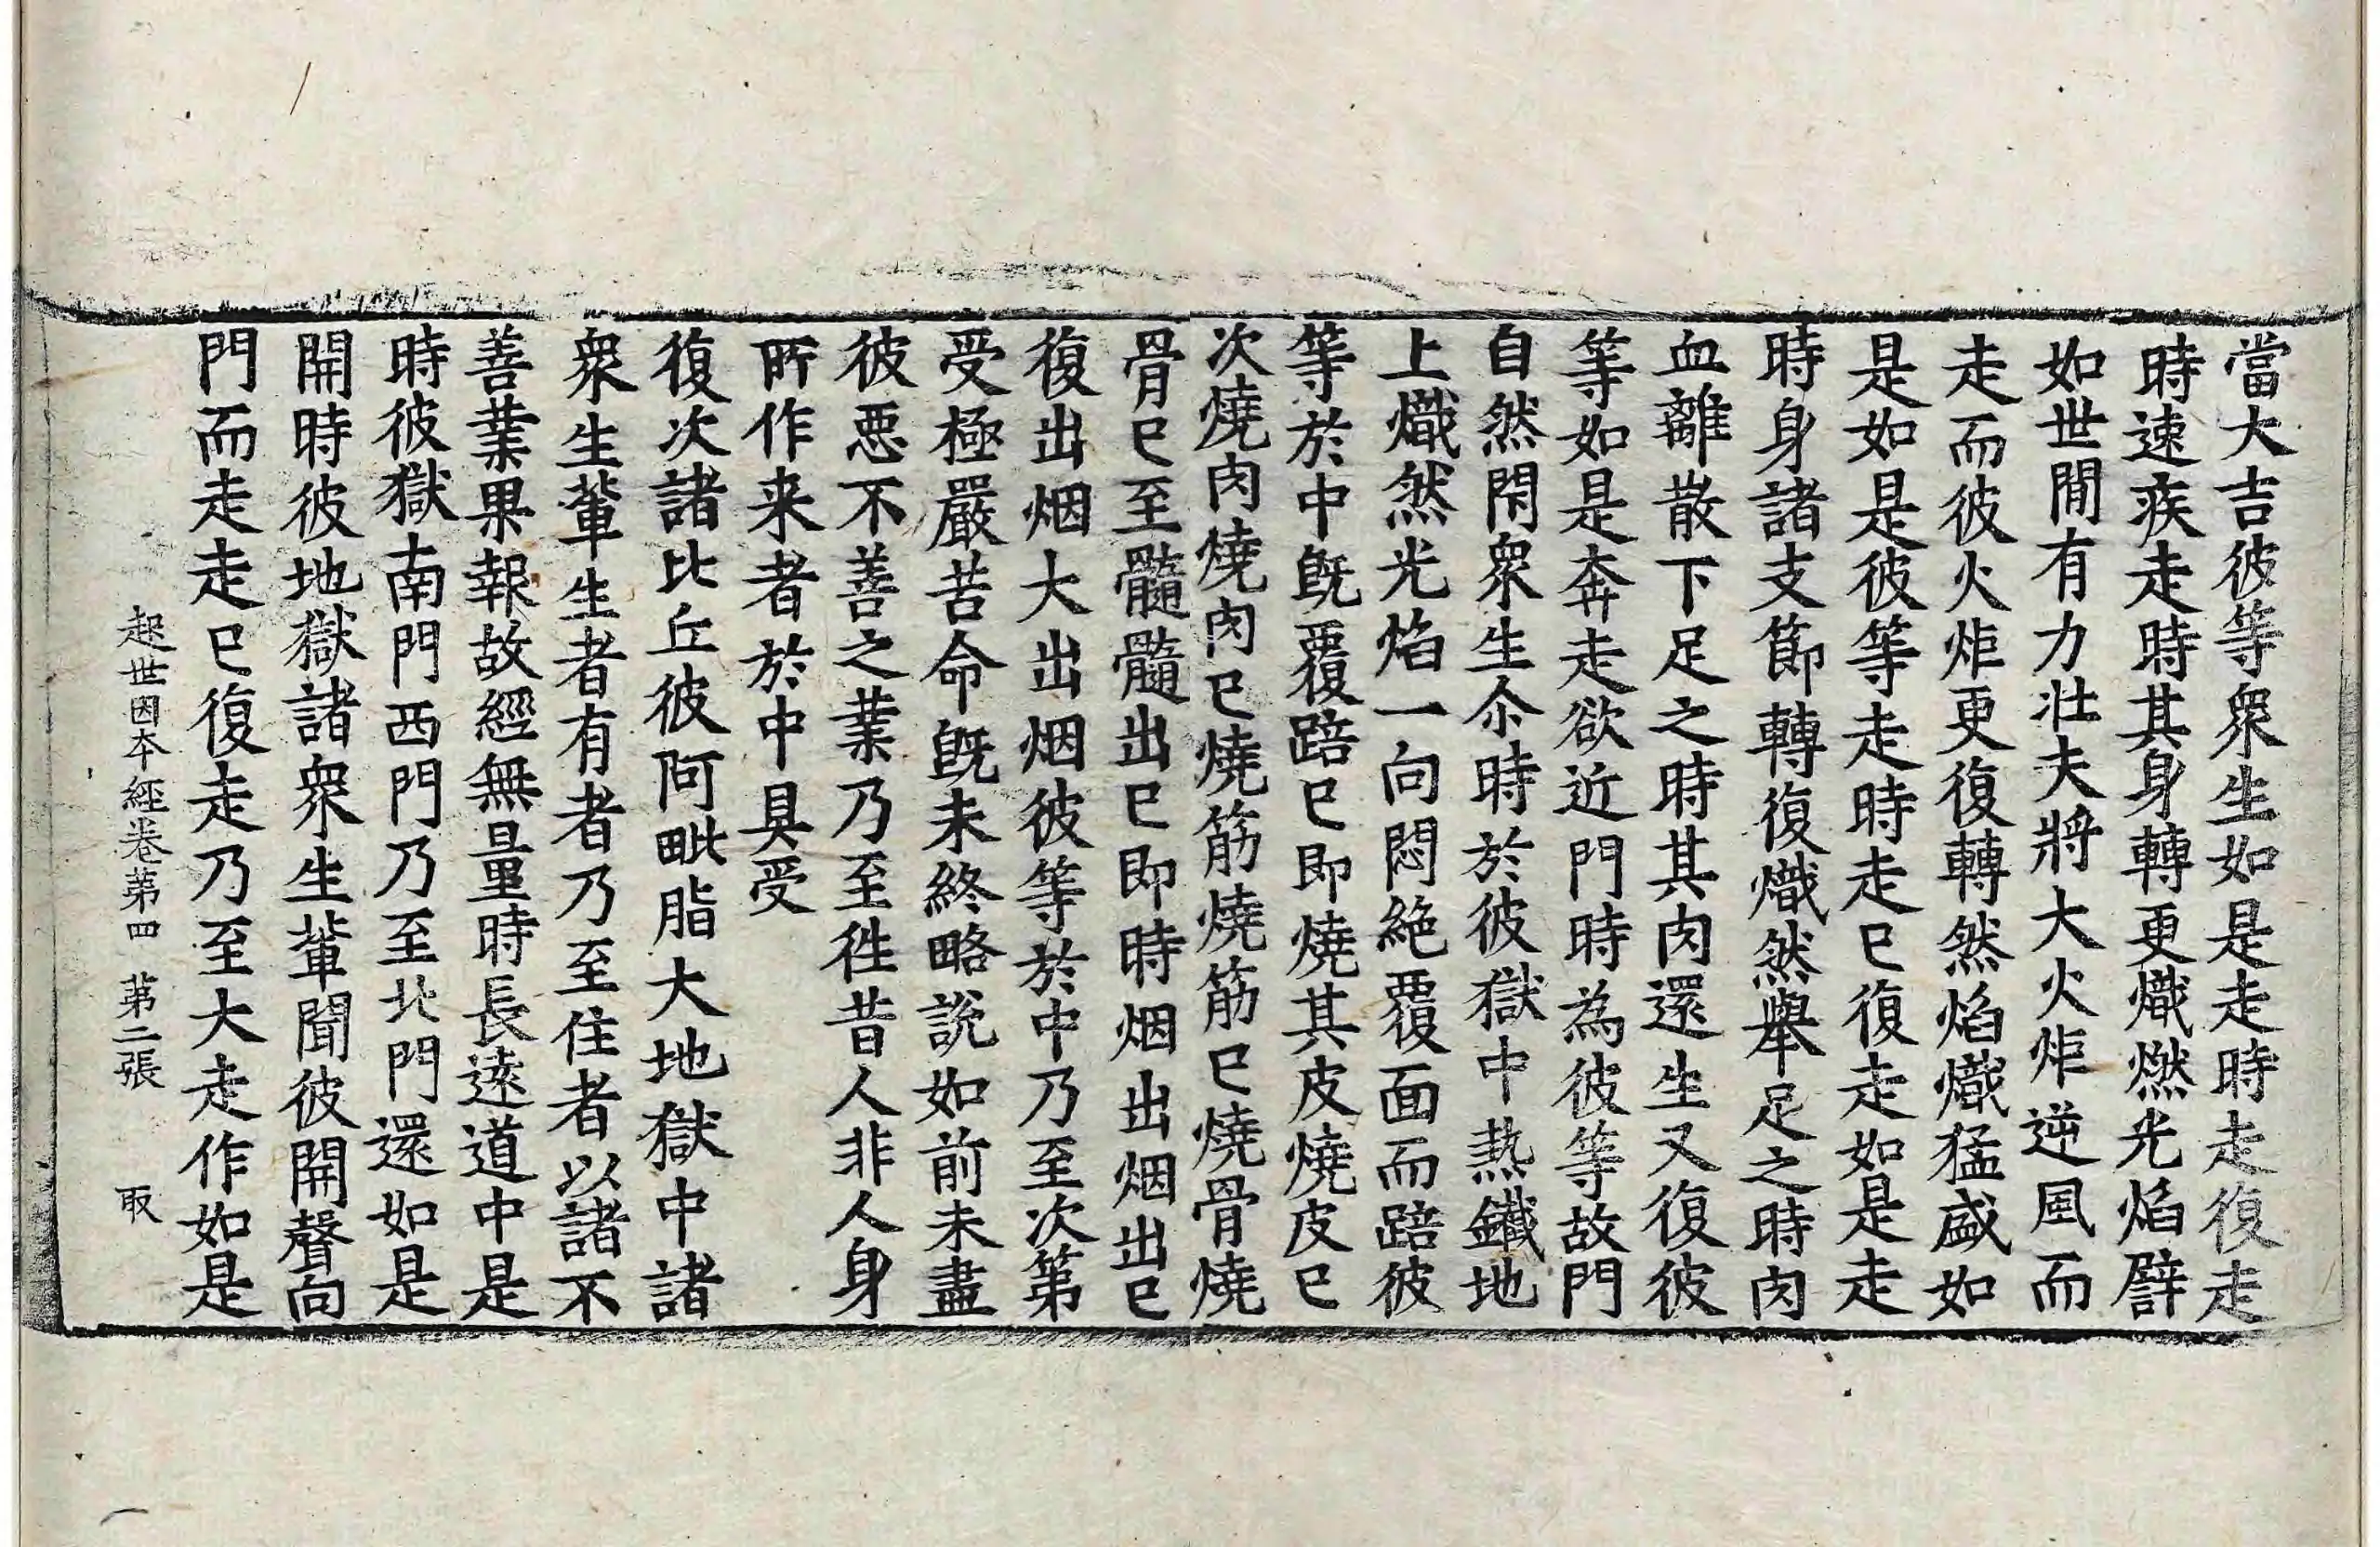 當大吉彼等衆生如是走時走復走
時速疾走時其身轉更熾燃光焰譬
如世間有力壯夫將大火炬逆風而
走而彼火炬更復轉然焰熾猛盛如
是如是彼等走時走已復走如是走
時身諸支節轉復熾然舉足之時肉
血離散下足之時其肉還生又復彼
等如是奔走欲近門時為彼等故門
自然閇衆生尒時於彼獄中熱鐵地
上熾然光焰一向悶絶覆面而踣彼
等於中旣覆踣已即燒其皮燒皮已
次燒肉燒肉已燒筋燒筋已燒骨燒
骨已至髓髓出已即時烟出烟出已
復出烟大出烟彼等於中乃至次第
受極嚴苦命旣未終略說如前未盡
彼惡不善之業乃至徃昔人非人身
所作来者於中具受
復次諸比丘彼阿毗脂大地獄中諸
衆生軰生者有者乃至住者以諸不
善業果報故經無量時長遠道中是
時彼獄南門西門乃至北門還如是
開時彼地獄諸衆生軰聞彼開聲向
門而走走已復走乃至大走作如是
起世因本經卷第四　第二張　取